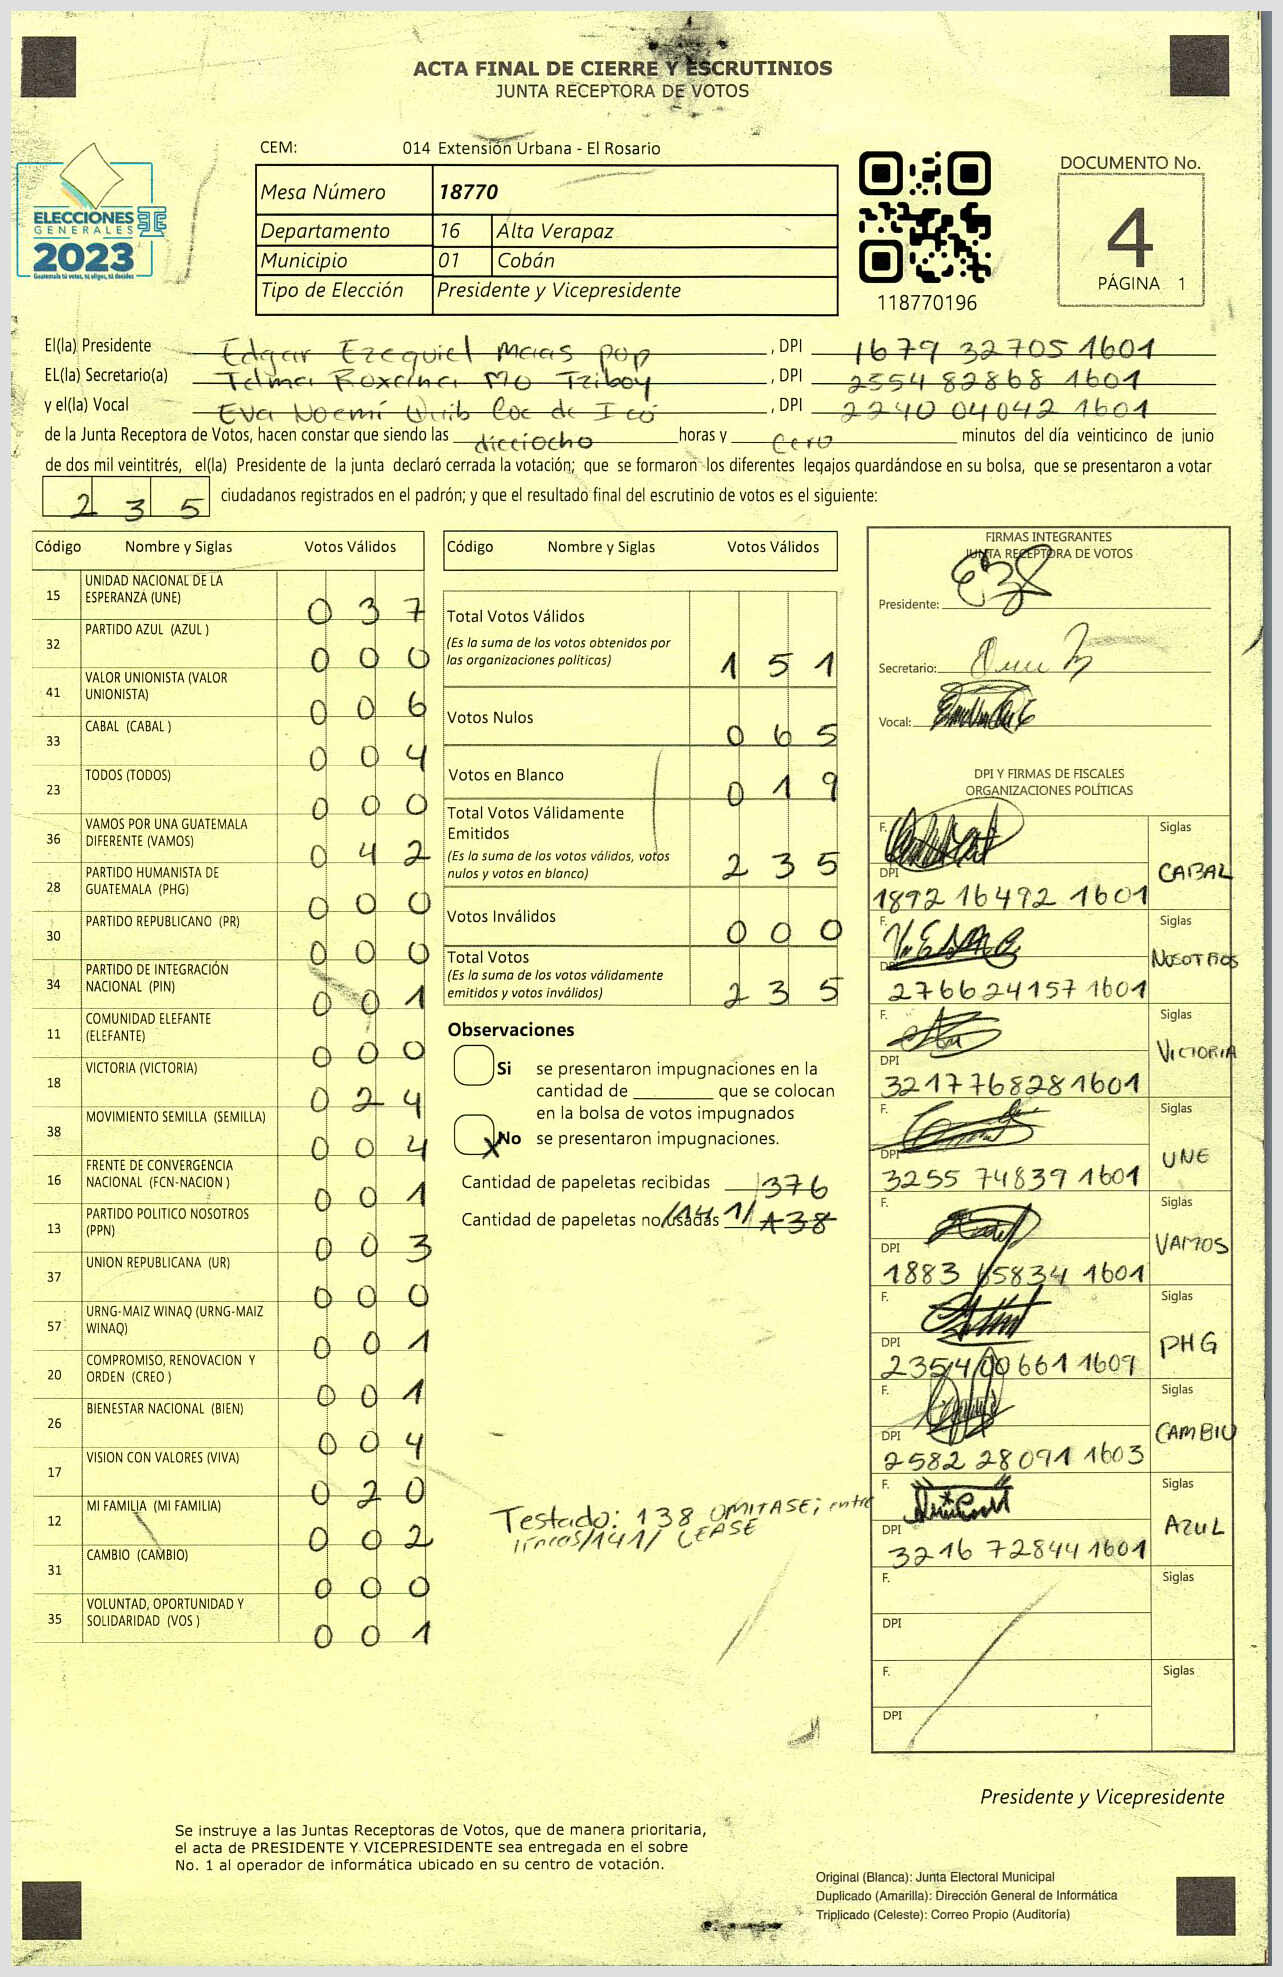 ACTA FINAL DE CIERRE Y ESCRUTINIOS
JUNTA RECEPTORA DE VOTOS
CEM: 014 Extensión Urbana - El Rosario
Mesa Número 18770
Departamento 16 Alta Verapaz
Municipio 01 Cobán
Tipo de Elección Presidente y Vicepresidente
ELECCIONES
GENERALES
2023
Guatemala tú votas, tú eliges, tú decides
118770196
DOCUMENTO No.
4
PÁGINA 1
El(la) Presidente Edgar Ezequiel Maas Pop, DPI 1679 32705 1601
EL(la) Secretario(a) Telma Roxana Mo Tziboy, DPI 2554 82868 1601
y el(la) Vocal Eva Noemí Quib Coc de Icó, DPI 2240 04042 1601
de la Junta Receptora de Votos, hacen constar que siendo las dieciocho horas y cero minutos del día veinticinco de junio
de dos mil veintitrés, el(la) Presidente de la junta declaró cerrada la votación; que se formaron los diferentes legajos guardándose en su bolsa, que se presentaron a votar
235 ciudadanos registrados en el padrón; y que el resultado final del escrutinio de votos es el siguiente:
Código Nombre y Siglas Votos Válidos
15 UNIDAD NACIONAL DE LA ESPERANZA (UNE) 037
32 PARTIDO AZUL (AZUL ) 000
41 VALOR UNIONISTA (VALOR UNIONISTA) 006
33 CABAL (CABAL ) 004
23 TODOS (TODOS) 000
36 VAMOS POR UNA GUATEMALA DIFERENTE (VAMOS) 042
28 PARTIDO HUMANISTA DE GUATEMALA (PHG) 000
30 PARTIDO REPUBLICANO (PR) 000
34 PARTIDO DE INTEGRACIÓN NACIONAL (PIN) 001
11 COMUNIDAD ELEFANTE (ELEFANTE) 000
18 VICTORIA (VICTORIA) 024
38 MOVIMIENTO SEMILLA (SEMILLA) 004
16 FRENTE DE CONVERGENCIA NACIONAL (FCN-NACION ) 001
13 PARTIDO POLITICO NOSOTROS (PPN) 003
37 UNION REPUBLICANA (UR) 000
57 URNG-MAIZ WINAQ (URNG-MAIZ WINAQ) 001
20 COMPROMISO, RENOVACION Y ORDEN (CREO ) 001
26 BIENESTAR NACIONAL (BIEN) 004
17 VISION CON VALORES (VIVA) 020
12 MI FAMILIA (MI FAMILIA) 002
31 CAMBIO (CAMBIO) 000
35 VOLUNTAD, OPORTUNIDAD Y SOLIDARIDAD (VOS ) 001
Código Nombre y Siglas Votos Válidos
Total Votos Válidos
(Es la suma de los votos obtenidos por
las organizaciones políticas) 151
Votos Nulos 065
Votos en Blanco 019
Total Votos Válidamente
Emitidos
(Es la suma de los votos válidos, votos
nulos y votos en blanco) 235
Votos Inválidos 000
Total Votos
(Es la suma de los votos válidamente
emitidos y votos inválidos) 235
Observaciones
Si se presentaron impugnaciones en la
cantidad de ________ que se colocan
en la bolsa de votos impugnados
X No se presentaron impugnaciones.
Cantidad de papeletas recibidas 376
Cantidad de papeletas no usadas /141/ 138
Testado: 138 OMITASE; entre
líneas/141/ LEASE
FIRMAS INTEGRANTES
JUNTA RECEPTORA DE VOTOS
Presidente:
Secretario:
Vocal:
DPI Y FIRMAS DE FISCALES
ORGANIZACIONES POLÍTICAS
F. Siglas
DPI 1892 16492 1601 CABAL
F. Siglas
DPI 2766241571601 NOSOTROS
F. Siglas
DPI 3217768281601 VICTORIA
F. Siglas
DPI 3255 74839 1601 UNE
F. Siglas
DPI 1883 65834 1601 VAMOS
F. Siglas
DPI 2354 00661 1609 PHG
F. Siglas
DPI 2582 28091 1603 CAMBIO
F. Siglas
DPI 3216 72844 1601 AZUL
F. Siglas
DPI
F. Siglas
DPI
Presidente y Vicepresidente
Se instruye a las Juntas Receptoras de Votos, que de manera prioritaria,
el acta de PRESIDENTE Y VICEPRESIDENTE sea entregada en el sobre
No. 1 al operador de informática ubicado en su centro de votación.
Original (Blanca): Junta Electoral Municipal
Duplicado (Amarilla): Dirección General de Informática
Triplicado (Celeste): Correo Propio (Auditoría)